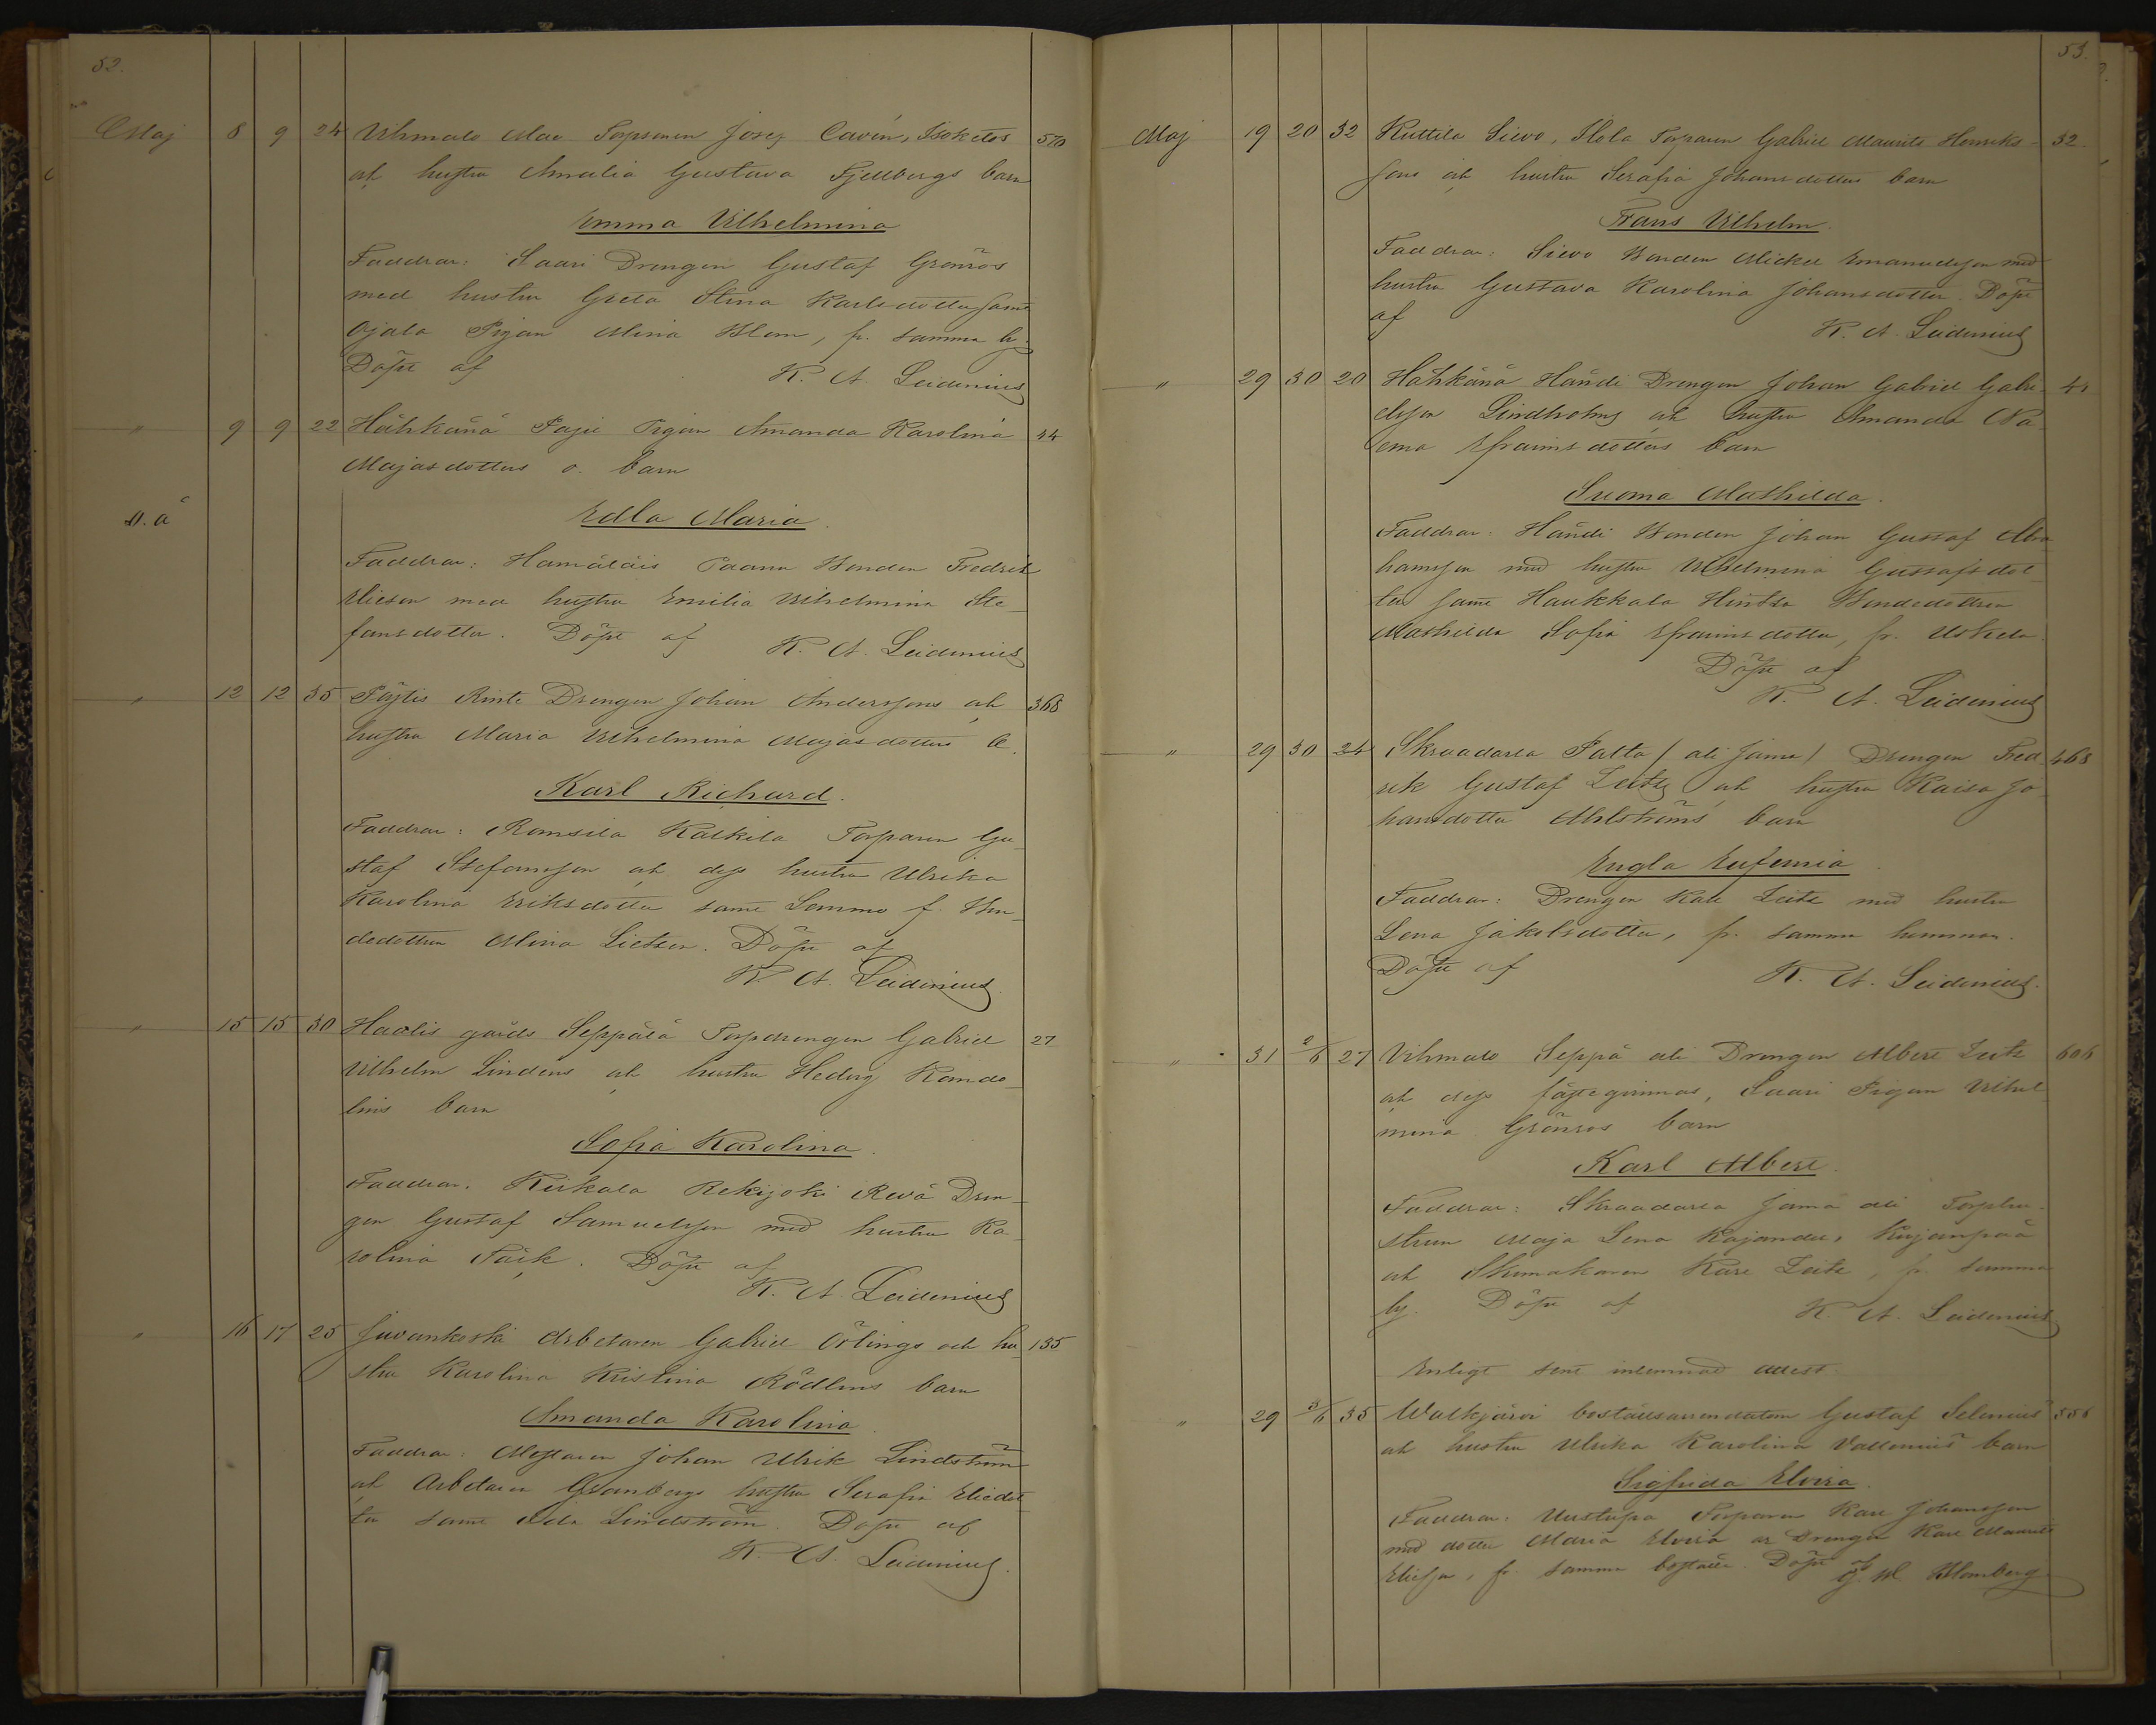 52.
Maj 8 9 24 Vihmalo Mac Torparen Josef Cavén, Isoketos 570
och hustru Amalia Gustava Fjellbergs barn
Emma Vilhelmina
Faddrar: Saari Drengen Gustaf Grönroos
med hustru Greta Stina Karlsdotter samt
Ojala Pigan Mina Blom, fr. samma by.
Döpt af K. A. Leidenius
" 9 9 22 Hähkänä Paju Pigan Amanda Karolina 44
Majasdotters o. barn
O. ä Edla Maria.
Faddrar: Hämäläis Paanu Bonden Fredrik
Elieson med hustru Emilia Vilhelmina Ste-
fansdotter. Döpt af K. A. Leidenius
" 12 12 35 Pöytis Rinte Drengen Johan Anderssons och 368
hustru Maria Vilhelmina Majasdotters
Karl Richard.
Faddrar: Romsila Kalkila Torparen Gu-
staf Stefansson och dess hustru Ulrika
Karolina Eriksdotter samt Sommo f. Bon-
dedottren Mina Lietzen. Döpt af
K. A. Leidenius.
" 15 15 30 Haalis gårds Seppälä Torpdrengen Gabriel 27
Vilhelm Lindens och hustru Hedvig Kando-
lins barn
Sofia Karolina.
Faddrar. Kiikala Rekijoki Revä Dren-
gen Gustaf Samuelsson med hustru Ka-
rolina Fäik. Döpt af
K. A. Leidenius
" 16 17 25 Juvankoski Arbetaren Gabriel Örlings och hu- 135
stru Karolina Kristina Rödlins barn
Amanda Karolina.
Faddrar: Mästaren Johan Ulrik Lindström
och Arbetaren Granbergs hustru Serafia Eliedot-
ter samt Ida Lindström. Döpt af
K. A. Leidenius.
53.
Maj 19 20 32 Kuttila Sievo, Ilola Torparen Gabriel Maurits Henriks- 32.
sons och hustru Serafia Johansdotters barn
Frans Vilhelm.
Faddrar: Sievo Bonden Mickel Emanuelsson med
hustru Gustava Karolina Johansdotter. Döpt
af K. A. Leidenius
" 29 30 20 Hähkänä Händi Drengen Johan Gabriel Gabri- 41
elsson Lindholms och hustru Amanda Na-
ema Efraimsdotters barn
Suoma Mathilda.
Faddrar: Händi Bonden Johan Gustaf Abra-
hamsson med hustru Vilhelmina Gustafsdot-
ter samt Haukkala Hintsa Bondedottren
Mathilda Sofia Efraimsdotter, fr. Uskela.
Döpt af
K. A. Leidenius
" 29 30 24 Skraadarla Palta (ali Jama) Drengen Fred- 468
rik Gustaf Leitz och hustru Kaisa Jo-
hansdotter Ahlströms barn
Engla Eufemia.
Faddrar: Drengen Karl Leitz med hustru
Lena Jakobsdotter, fr. samma hemman.
Döpt af K. A. Leidenius.
" 31 2/6 27 Vihmalo Seppä ali Drengen Albert Leitz 606
och dess fästeqvinnas, Saari Pigan Vilhel-
mina Grönroos barn
Karl Albert.
Faddrar: Skraadarla Jama ali Torphu-
strun Maja Lena Kajander, Kujanpää
och Skomakaren Karl Leitz, fr. samma
by. Döpt af K. A. Leidenius
Enligt sent inlemnad attest
" 29 3/6 35 Walkjärvi boställsarrendatorn Gustaf Selenius 556
och hustru Ulrika Karolina Vallenius barn
Sigfrida Elvira.
Faddrar: Uustupa Torparen Karl Johansson
med dotter Maria Elvira o Drengen Karl Maurits
Eliesson, fr. samma boställe. Döpt af G. W. Blomberg